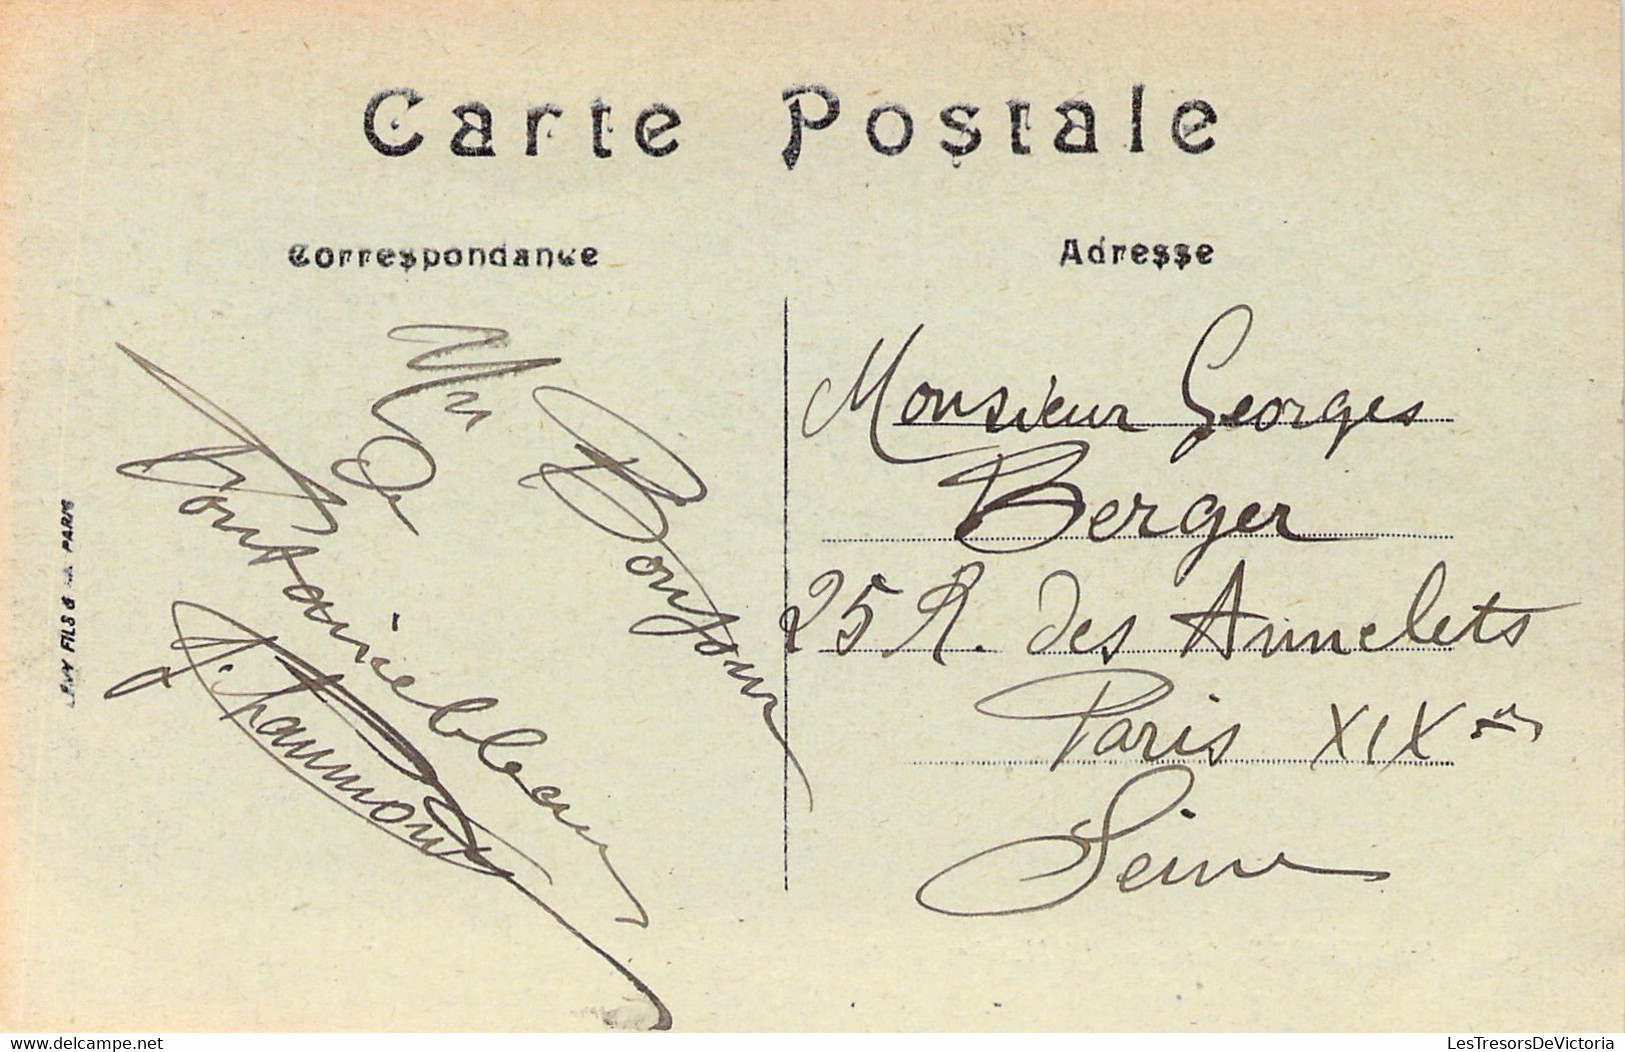 Carte Postale
Correspondance
Adresse
Un Bonjour
de
Fontainebleau
J. Chaumont
Monsieur Georges
Berger
25 R. des Annelets
Paris XIXme
Seine
LEVY FILS & Cie PARIS
delcampe.net
LesTresorsDeVictoria